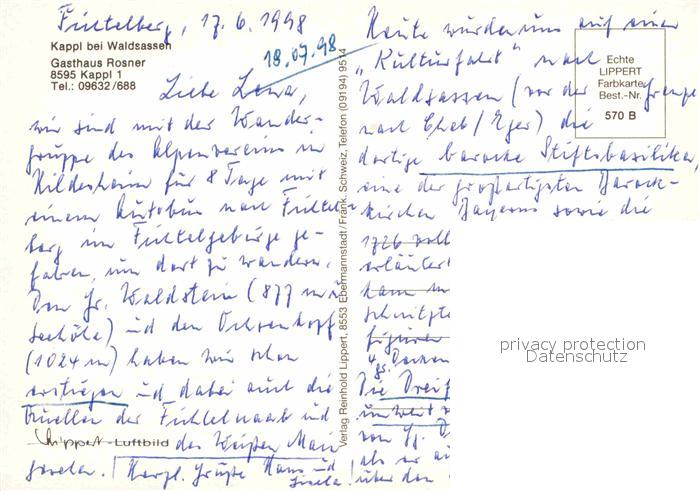 Fichtelberg, 17.6.1998
Kappl bei Waldsassen
Gasthaus Rosner
8595 Kappl 1
Tel.: 09632/688
18.07.98
Liebe Lena,
wir sind mit der Wander-
gruppe des Alpenvereins in
Hildesheim für 8 Tage mit
einem Autobus nach Fichtel-
berg im Fichtelgebirge ge-
fahren, um dort zu wandern.
Den Gr. Waldstein (877 m
Seehöhe) und den Ochsenkopf
(1024 m) haben wir schon
erstiegen und dabei auch die
Quellen der Fichtelnaab und
Lippert-Luftbild
des Weißen Main
gesehen. Herzl. Grüße Hans und
Gisela!
Verlag Reinhold Lippert, 8553 Ebermannstadt/Fränk. Schweiz, Telefon (09194) 9514
Heute wurden uns auf einer
„Kulturfahrt" nach
Waldsassen (vor der Grenze
nach Cheb/Eger) die
dortige barocke Stiftsbasilika,
eine der großartigsten Barock-
kirchen Bayerns sowie die
Echte
LIPPERT
Farbkarte
Best.-Nr.
570 B
1726
erläutert
kam
Schnitzte
Figuren
Die Dreif
unweit
von Gg. D
als er
über den
privacy protection
Datenschutz